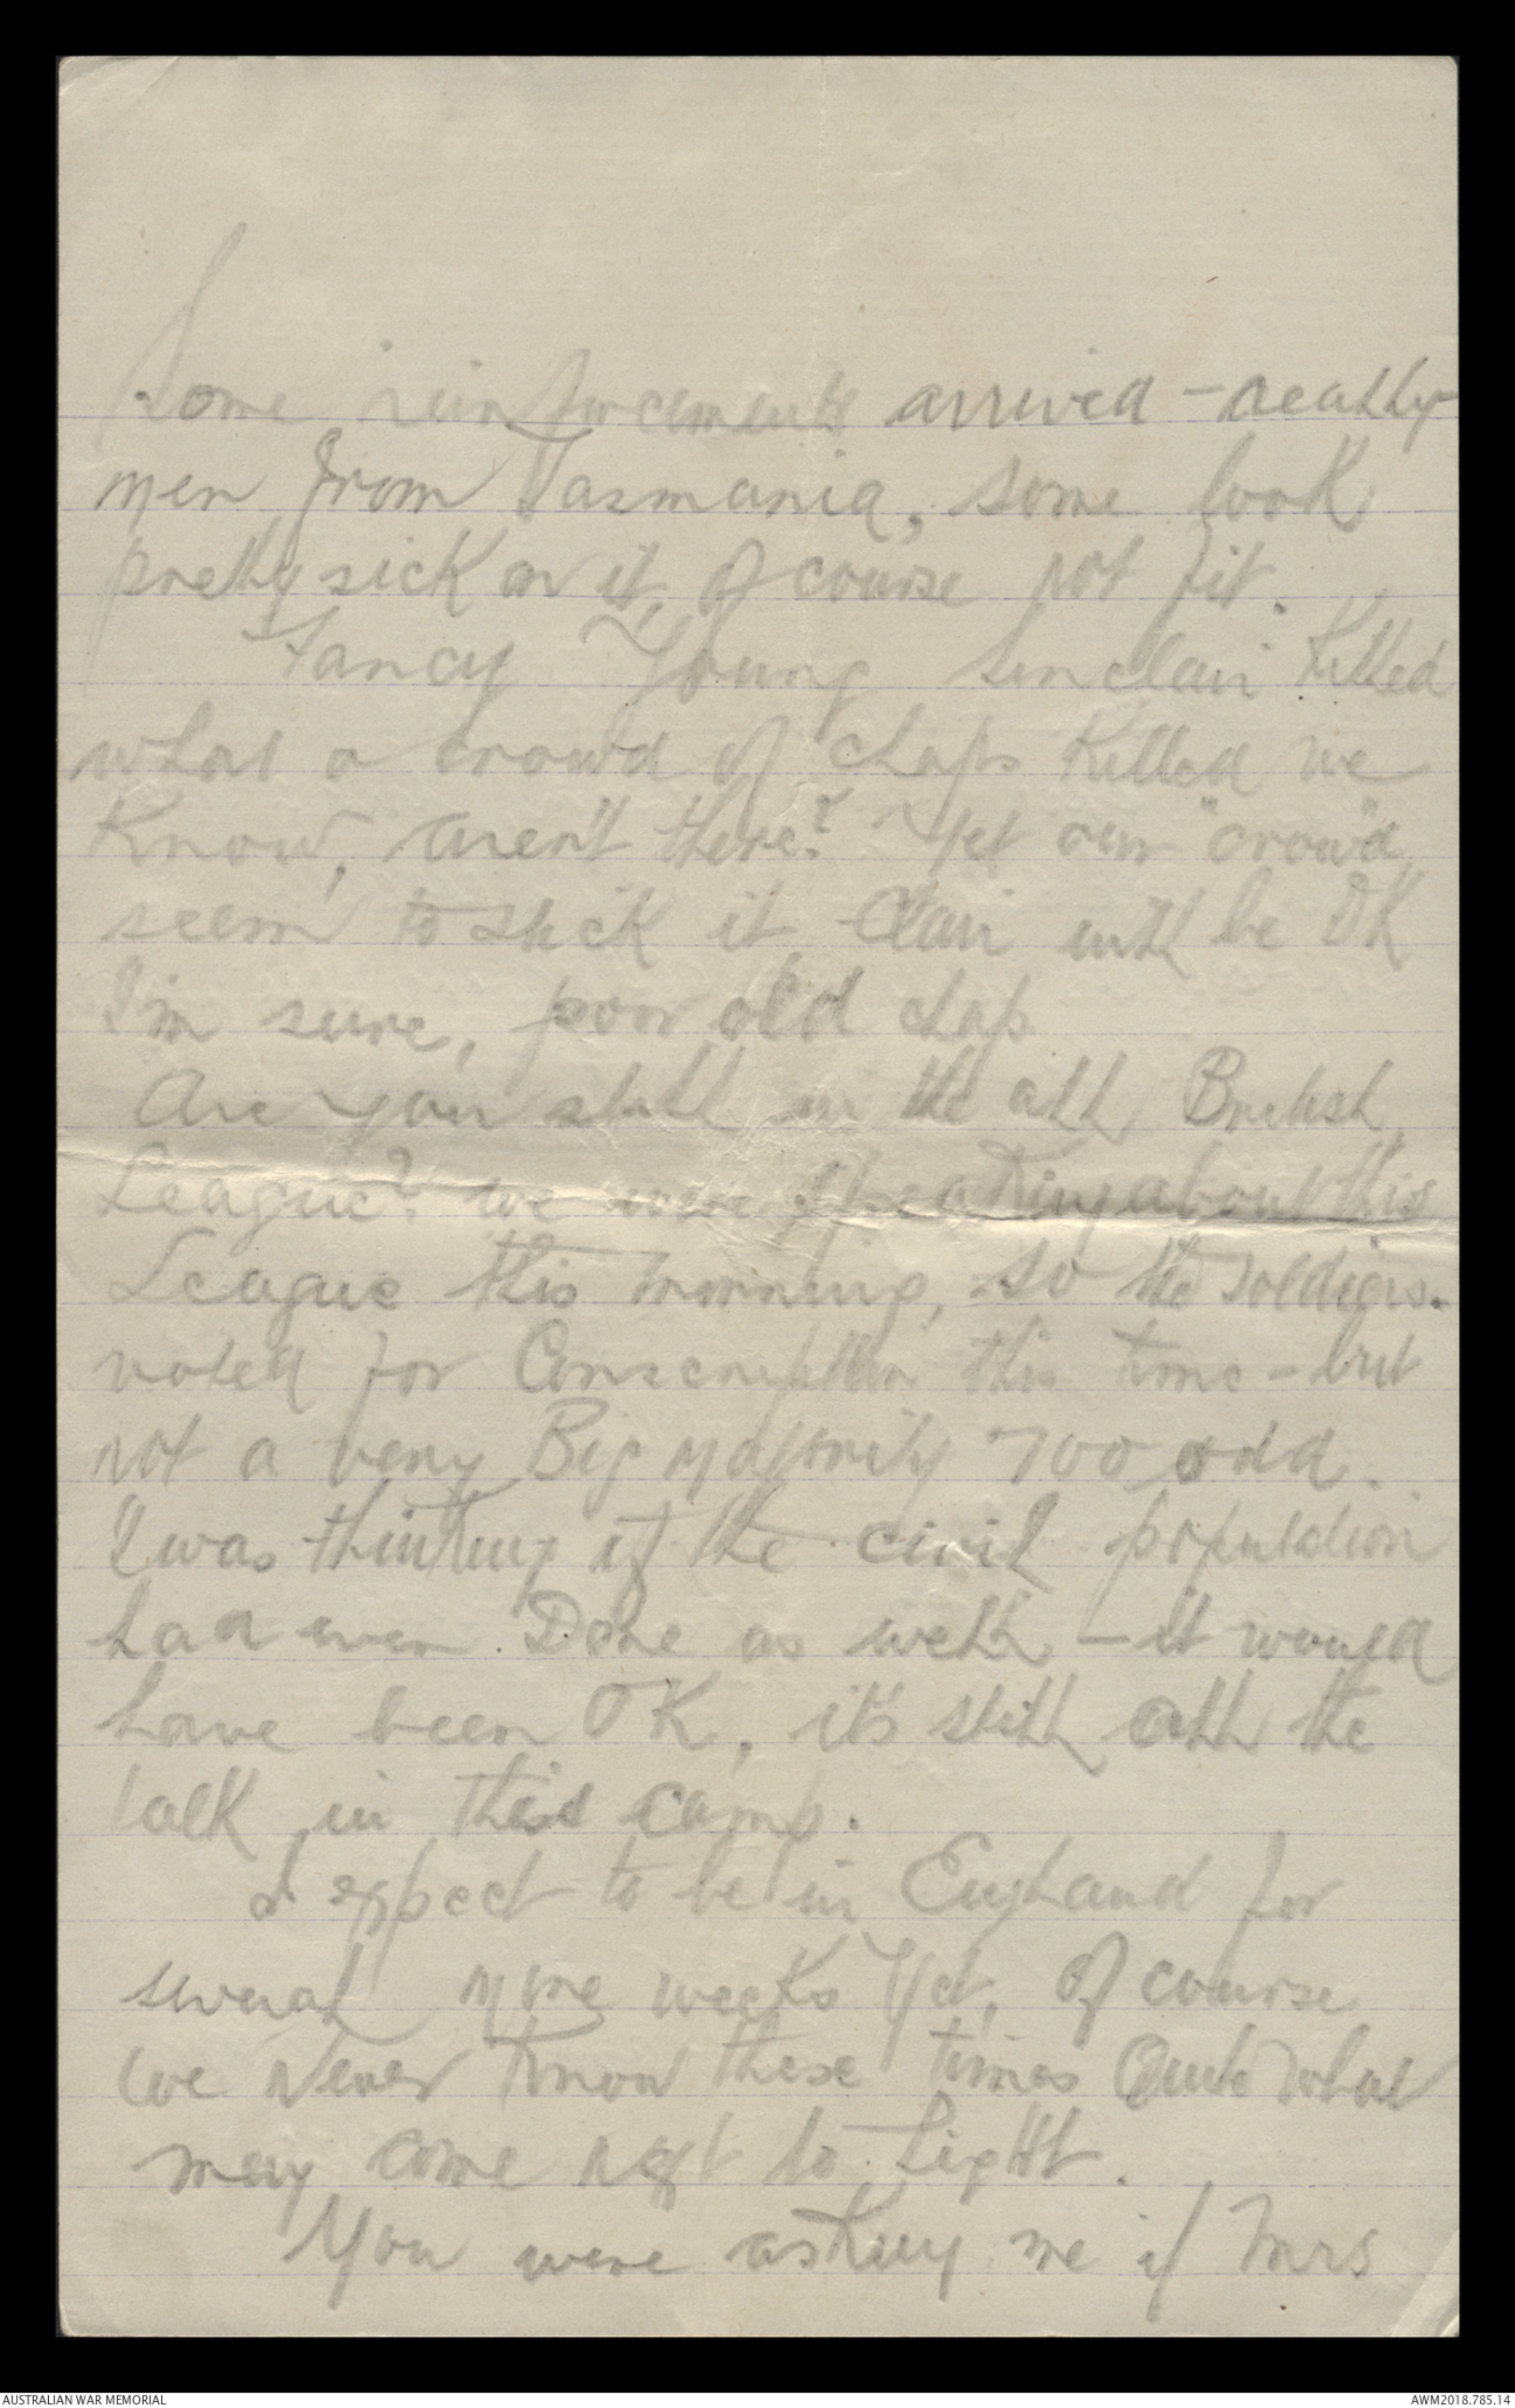 Some reinforcements arrived - neathy
men from Tasmania, some look
pretty sick on it, of course not fit.
Fancy Young Sinclair Killed
what a crowd of chaps Killed we
Know, aren't there? Yet our "crowd"
seem to stick it Clair will be OK
I'm sure, poor old chap
Are you still in the all British
League? we were speaking about this
League this morning, so the soldiers.
voted for Conscription this time - but
not a very Big majority 700 odd.
I was thinking if the civil population
had even Done as well - it would
have been OK, it's still all the
talk in this camp.
I expect to be in England for
several more weeks Yet, Of course
we Never Know these times Quite what
may come next to Light.
You were asking me if Mrs
AUSTRALIAN WAR MEMORIAL
AWM2018.785.14